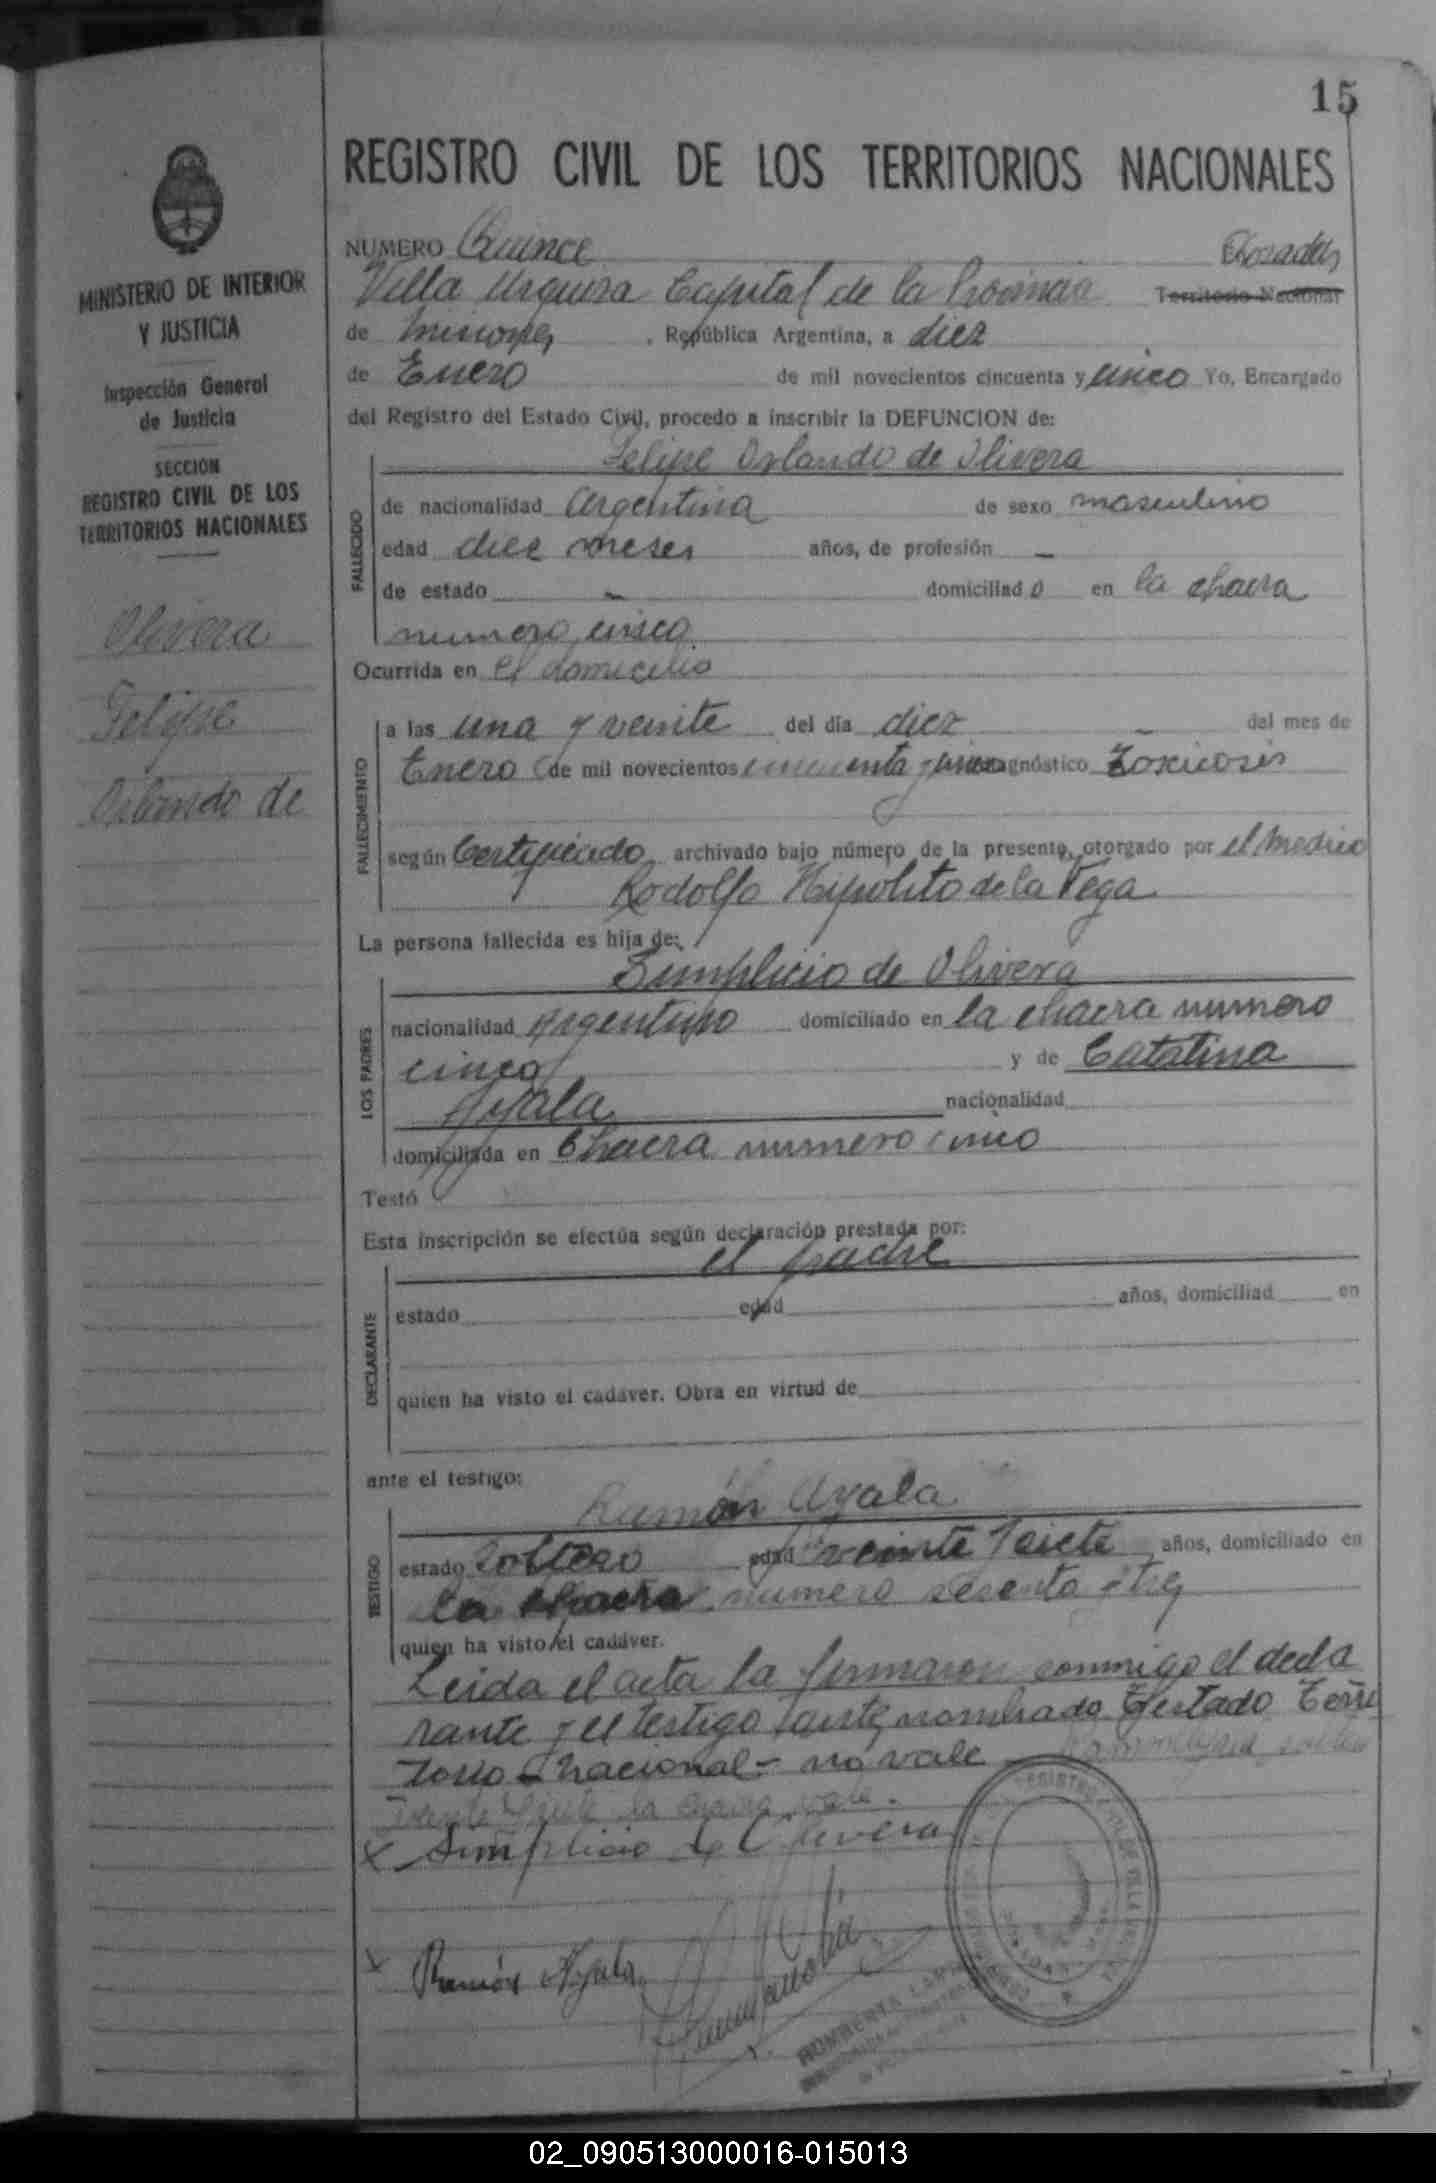 15
REGISTRO CIVIL DE LOS TERRITORIOS NACIONALES
MINISTERIO DE INTERIOR
Y JUSTICIA
Inspección General
de Justicia
SECCION
REGISTRO CIVIL DE LOS
TERRITORIOS NACIONALES
Olivera
Felipe
Orlando de
NUMERO Quince Posadas
Villa Urquiza Capital de la Provincia Territorio Nacional
de Misiones, República Argentina, a diez
de Enero de mil novecientos cincuenta y cinco Yo, Encargado
del Registro del Estado Civil, procedo a inscribir la DEFUNCION de:
Felipe Orlando de Olivera
FALLECIDO
de nacionalidad Argentina de sexo masculino
edad diez meses años, de profesión —
de estado — domiciliado en la chacra
numero cinco
Ocurrida en el domicilio
FALLECIMIENTO
a las una y veinte del día diez del mes de
Enero de mil novecientos cincuenta y cinco diagnóstico Toxicosis
según Certificado archivado bajo número de la presente, otorgado por el Medico
Rodolfo Hipolito de la Vega
La persona fallecida es hija de:
Simplicio de Olivera
LOS PADRES
nacionalidad Argentino domiciliado en la chacra numero
cinco y de Catalina
Ayala nacionalidad
domiciliada en Chacra numero cinco
Testó
Esta inscripción se efectúa según declaración prestada por:
el padre
DECLARANTE
estado edad años, domiciliad en
quien ha visto el cadáver. Obra en virtud de
ante el testigo:
Ramón Ayala
TESTIGO
estado soltero edad veinte y siete años, domiciliado en
la chacra numero sesenta y tres
quien ha visto el cadáver.
Leida el acta la firmaron conmigo el decla
rante y el testigo ante nombrado Testado Terri
torio - Nacional - no vale
veinte y siete la chacra vale.
x Simplicio de Olivera
x Ramón Ayala
02_090513000016-015013